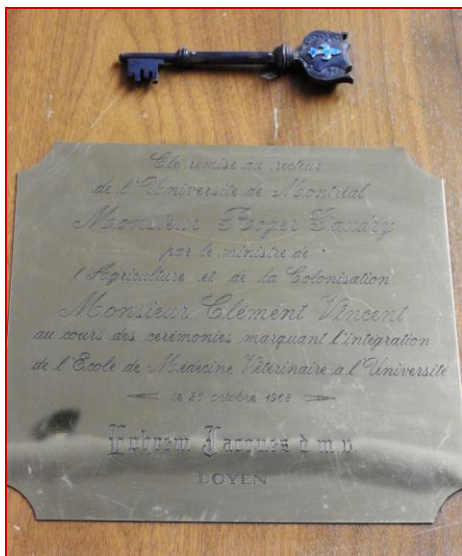 Clé remise au recteur
de l'Université de Montréal
Monsieur Roger Gaudry
par le ministre de
l'Agriculture et de la Colonisation
Monsieur Clément Vincent
au cours des cérémonies marquant l'intégration
de l'École de Médecine Vétérinaire a l'Université
le 31 octobre 1968
Ephrem Jacques d.m.v.
DOYEN